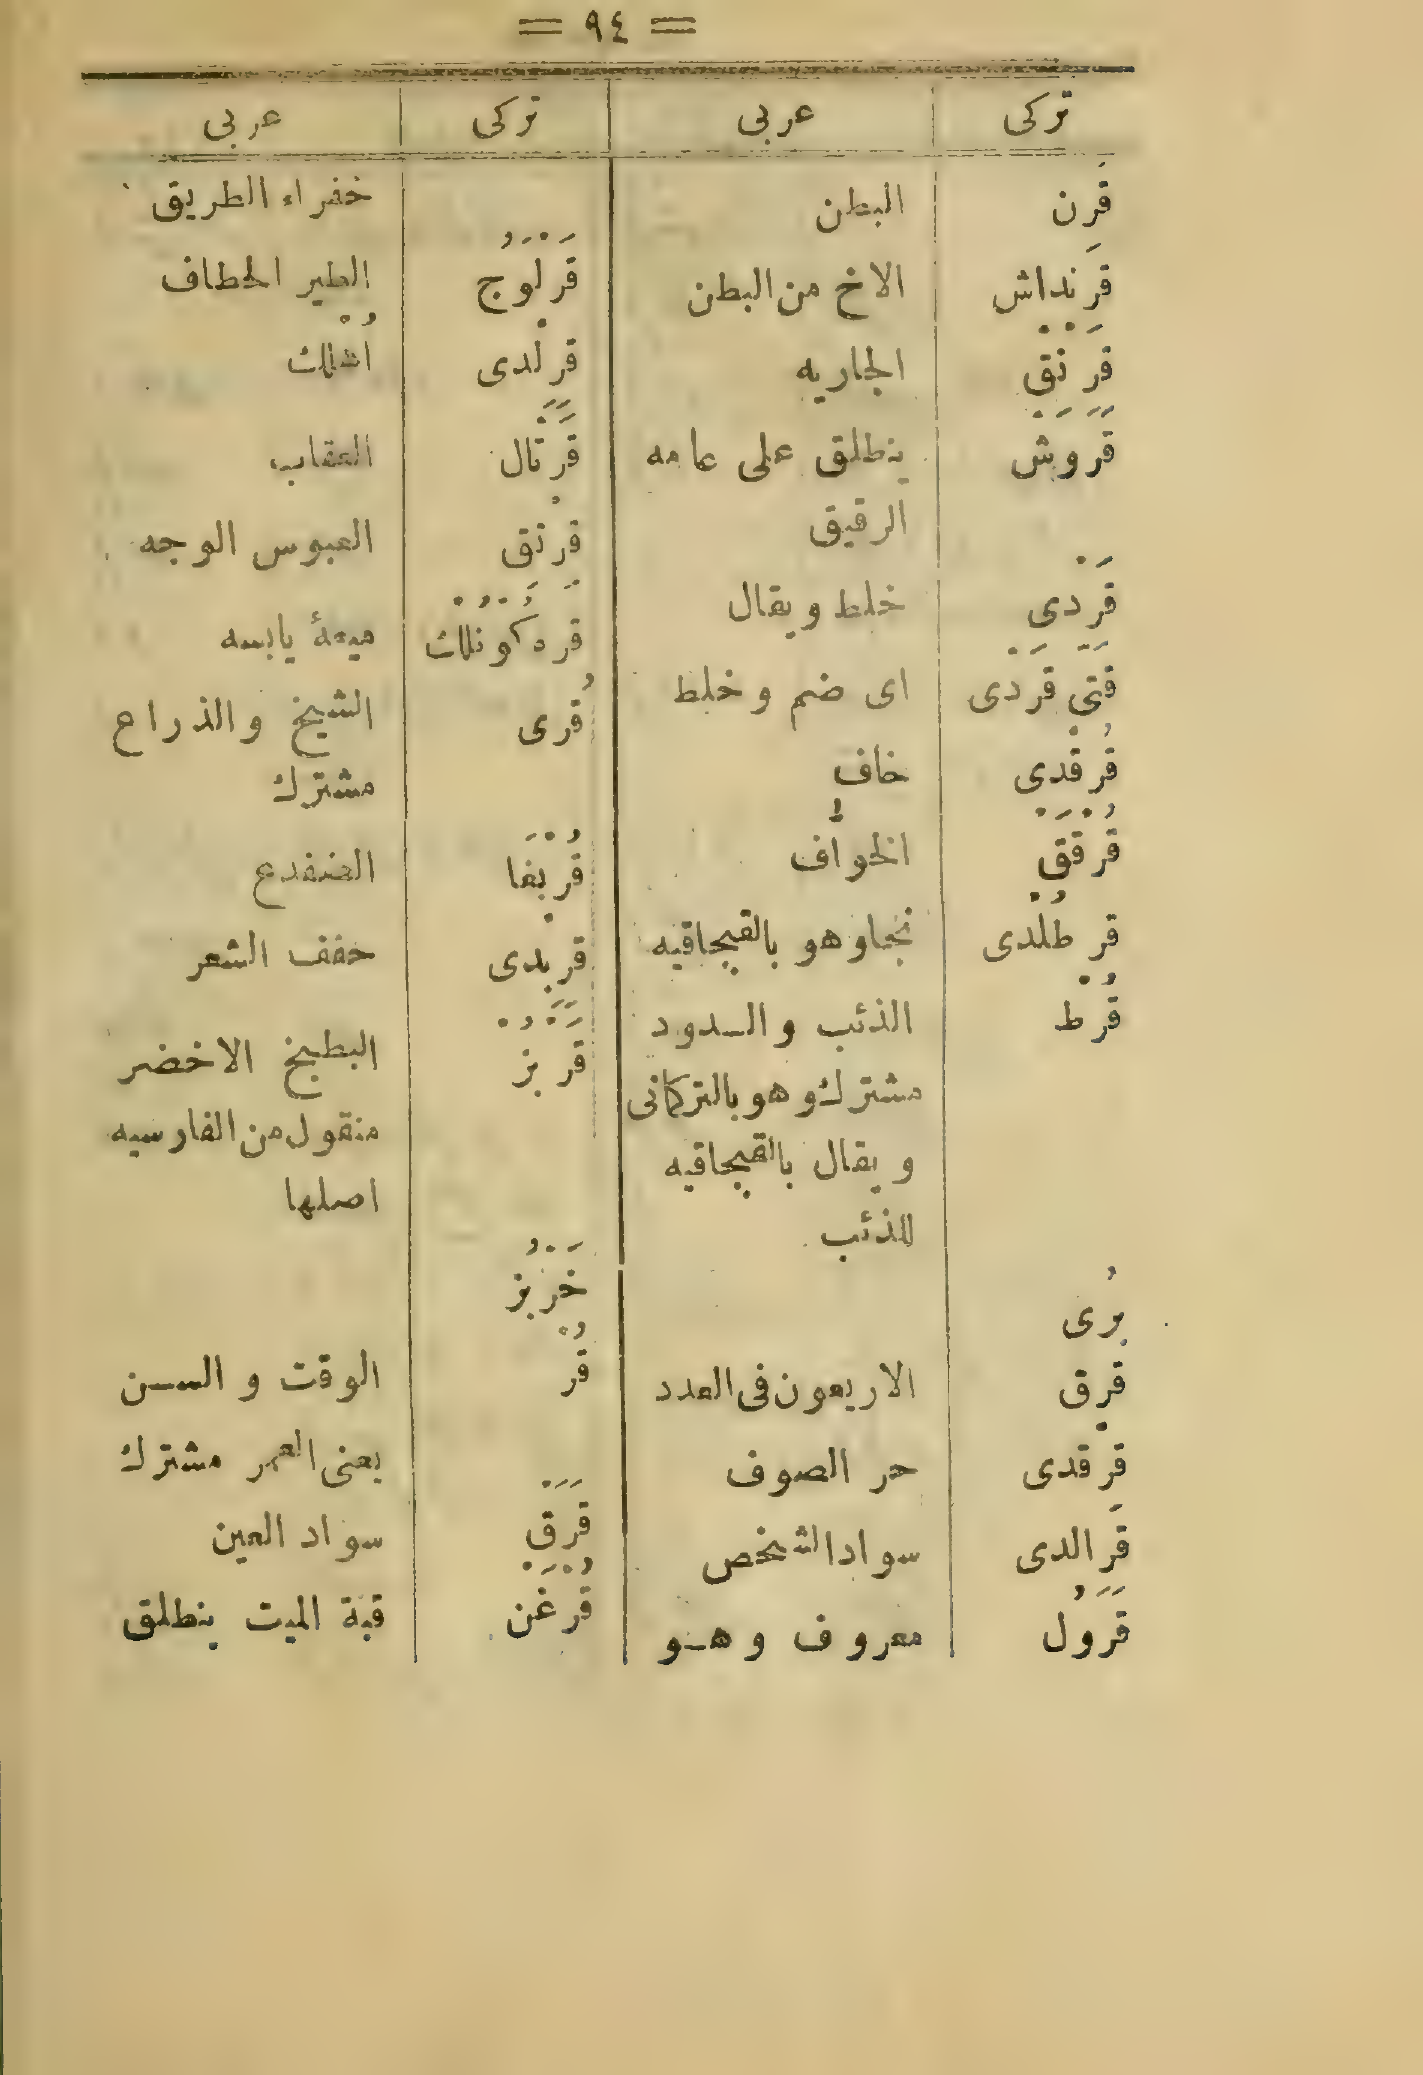 = ٩٤ =
تركى عربى تركى عربى
قرن البطن
قرنداش الاخ من البطن
قرنق الجاريه
قروش ينطلق على عامه
الرقيق
قردى خلط ويقال
قتى قردى اى ضم وخلط
قرقدى خاف
قرقق الخواف
قرطلدى نجا وهو بالقپچاقيه
قرط الذئب والدود
مشترك وهو بالتركمانى
ويقال بالقپچاقيه
للذئب
برى
قرق الاربعون فى العدد
قرقدى حر الصوف
قرالدى سواد الشخص
قرول معروف وهو
خفراء الطريق
قرلوج الطير الخطاف
قرلدى
قرتال العقاب
قرتق العبوس الوجه
قره كونلك ميعهٔ يابسه
قرى الشيخ والذراع
مشترك
قربغا الضفدع
قربدى خفف الشعر
قربز البطيخ الاخضر
منقول من الفارسيه
اصلها
خربز
قر الوقت والسن
يعنى العمر مشترك
قرق سواد العين
قرغن قبة الميت ينطلق